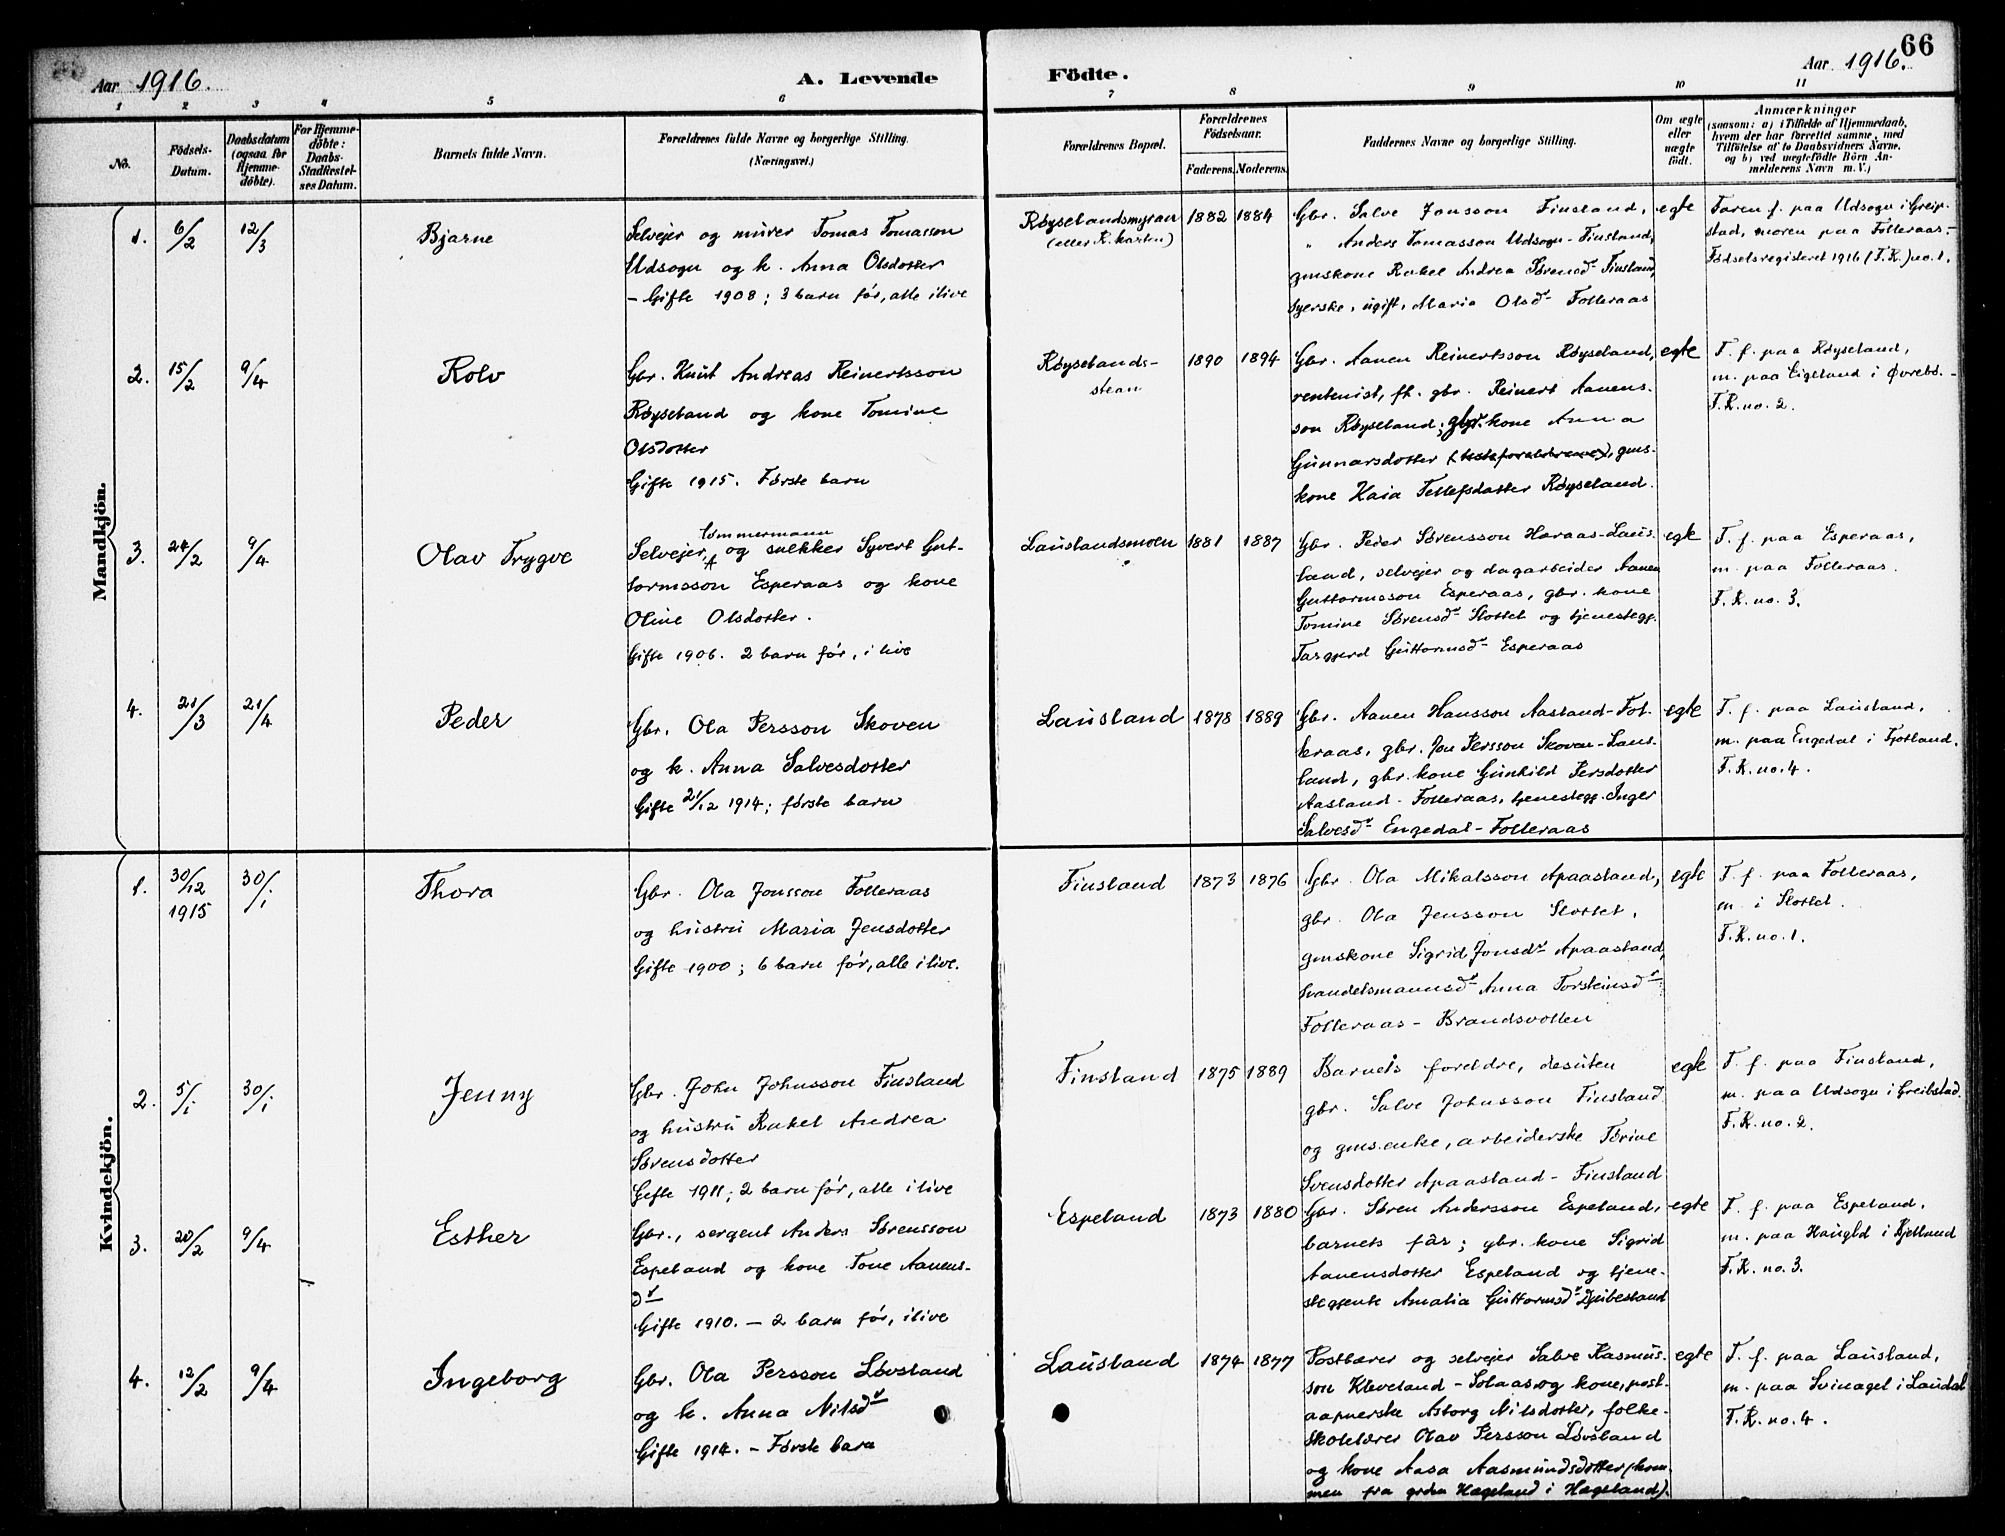 66
Aar 1916.
A. Levende
Födte.
Aar 1916.
1 2 3 4 5 6 7 8 9 10 11
No.
Födsels-
Datum.
Daabsdatum
(ogsaa for
Hjemme-
döbte).
For Hjemme-
döbte:
Daabs-
Stadfæstel-
ses Datum.
Barnets fulde Navn.
Forældrenes fulde Navne og borgerlige Stilling.
(Næringsvei.)
Forældrenes Bopæl.
Forældrenes
Födselsaar.
Faderens. Moderens.
Faddernes Navne og borgerlige Stilling.
Om ægte
eller
uægte
födt.
Anmærkninger
(saasom: a) i Tilfælde af Hjemmedaab,
hvem der har forrettet samme, med
Tilföielse af to Daabsvidners Navne,
og b) ved uægtefödte Börn An-
melderens Navn m. V.)
Mandkjön.
1. 6/2 12/3 Bjarne
Selvejer og murer Tomas Tomasson
Udsogn og k. Anna Olsdotter
- Gifte 1908; 3 barn før, alle ilive
Røyselandsmyran
(eller R. karten)
1882 1884
Gbr. Salve Jonsson Finsland,
" Anders Tomasson Udsogn-Finsland,
gmskone Rakel Andrea Sørensdr Finsland,
syerske, ugift, Maria Olsdr Folleraas
egte
Faren f. paa Udsogn i Greip-
stad, moren paa Folleraas.-
Fødselsregisteret 1916 (F.R.) no. 1.
2. 15/2 9/4 Rolv
Gbr. Knut Andreas Reinertsson
Røyseland og kone Tomine
Olsdotter
Gifte 1915. Første barn
Røyselands-
stean
1890 1894
Gbr. Aanen Reinertsson Røyseland,
rentenist, fh. gbr. Reinert Aanens-
son Røyseland; gbr. kone Anna
Gunnarsdotter (besteforeldrene), gms-
kone Kaia Tellefsdatter Røyseland.
egte
F. f. paa Røyseland,
m. paa Eigeland i Øvrebø. -
F.R. no. 2.
3. 24/2 9/4 Olav Trygve
tømmermann
Selvejer, og snekker Syvert Gut-
tormsson Esperaas og kone
Oline Olsdotter.
Gifte 1906. 2 barn før, i live
Lauslandsmoen 1881 1887
Gbr. Peder Sørensson Haraas-Laus-
land, selvejer og dagarbeider Aanen
Guttormsson Esperaas, gbr. kone
Tomine Sørensdr Slottet og tjenestegj.
Targjerd Guttormsdr Esperaas
egte
F. f. paa Esperaas,
m. paa Folleraas.
F.R. no. 3.
4. 21/3 21/4 Peder
Gbr. Ola Persson Skoven
og k. Anna Salvesdotter
Gifte 21/12 1914; første barn
Lausland 1878 1889
Gbr. Aanen Hansson Aasland-Fol-
leraas, gbr. Jon Persson Skoven-Laus-
land, gbr. kone Gunhild Persdotter
Aasland-Folleraas, tjenestegj. Inger
Salvesdr Engedal-Folleraas
egte
F. f. paa Lausland,
m. paa Engedal i Fjotland.
F.R. no. 4.
Kvindekjön.
1. 30/12 1915 30/1 Thora
Gbr. Ola Jonsson Folleraas
og hustru Maria Jensdotter
Gifte 1900; 6 barn før, alle ilive.
Finsland 1873 1876
Gbr. Ola Mikalsson Apaasland,
gbr. Ola Jensson Slottet,
gmskone Sigrid Jonsdr Apaasland,
Torsteinsdr
Folleraas - Brandsvollen
egte
F. f. paa Folleraas,
m. i Slottet.
F.R. no. 1.
2. 5/1 30/1 Jenny
Gbr. John Johnsson Finsland
og hustru Rakel Andrea
Sørensdotter
Gifte 1911; 2 barn før, alle i live
Finsland 1875 1889
Barnets foreldre, desuten
gbr. Salve Johnsson Finsland
og gms.enke, arbeiderske Tørine
Svensdotter Apaasland - Finsland
egte
F. f. paa Finsland,
m. paa Udsogn i Greibstad.
F.R. no. 2.
3. 20/2 9/4 Esther
Gbr., sergent Anders Sørensson
Espeland og kone Tone Aanens-
dr
Gifte 1910. - 2 barn før, ilive
Espeland 1873 1880
Gbr. Søren Andersson Espeland,
barnets far; gbr. kone Sigrid
Aanensdotter Espeland og tjene-
stegjente Amalia Guttormsdr Djubesland
egte
F. f. paa Espeland,
m. paa i Bjelland
F.R. no. 3.
4. 12/2 9/4 Ingeborg
Gbr. Ola Persson Løvsland
og k. Anna Nilsdr
Gifte 1914. - Første barn
Lausland 1874 1877
Postbærer og selvejer Salve Rasmus-
son Kleveland - Solaas og kone, post-
aapnerske Astorg Nilsdotter, folke-
skolelærer Olav Persson Løvsland
og kone Aasa Aasmundsdotter (kom-
men fra grden Hægeland i Hægeland).
egte
F. f. paa Lausland,
m. paa Svinagel i Laudal
F.R. no. 4.